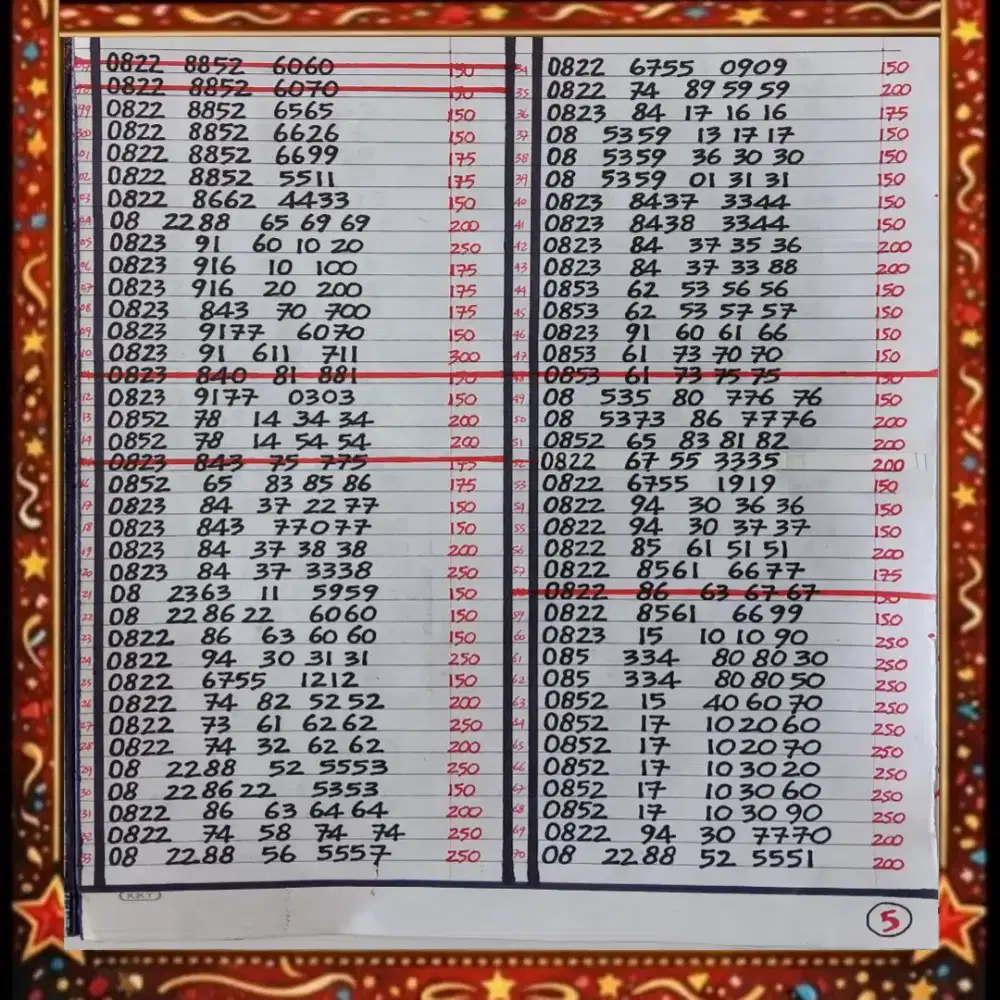 0822 8852 6060 150
0822 8852 6070 150
99 0822 8852 6565 150
300 0822 8852 6626 150
01 0822 8852 6699 175
02 0822 8852 5511 175
03 0822 8662 4433 150
04 08 2288 65 69 69 200
05 0823 91 60 10 20 250
06 0823 916 10 100 175
07 0823 916 20 200 175
08 0823 843 70 700 175
09 0823 9177 6070 150
10 0823 91 611 711 300
0823 840 81 881 150
12 0823 9177 0303 150
13 0852 78 14 34 34 200
14 0852 78 14 54 54 200
0823 843 75 775 175
16 0852 65 83 85 86 175
17 0823 84 37 22 77 150
18 0823 843 77077 150
19 0823 84 37 38 38 200
20 0823 84 37 3338 250
21 08 2363 11 5959 150
22 08 228622 6060 150
23 0822 86 63 60 60 150
24 0822 94 30 31 31 250
25 0822 6755 1212 150
26 0822 74 82 52 52 200
27 0822 73 61 62 62 250
28 0822 74 32 62 62 200
29 08 2288 52 5553 250
30 08 228622 5353 150
31 0822 86 63 64 64 200
32 0822 74 58 74 74 250
33 08 2288 56 5557 250
34 0822 6755 0909 150
35 0822 74 89 59 59 200
36 0823 84 17 16 16 175
37 08 5359 13 17 17 150
38 08 5359 36 30 30 150
39 08 5359 01 31 31 150
40 0823 8437 3344 150
41 0823 8438 3344 150
42 0823 84 37 35 36 200
43 0823 84 37 33 88 200
44 0853 62 53 56 56 150
45 0853 62 53 57 57 150
46 0823 91 60 61 66 150
47 0853 61 73 70 70 150
48 0853 61 73 75 75 150
49 08 535 80 776 76 150
50 08 5373 86 7776 200
51 0852 65 83 81 82 200
52 0822 67 55 3335 200
53 0822 6755 1919 150
54 0822 94 30 36 36 150
55 0822 94 30 37 37 150
56 0822 85 61 51 51 200
57 0822 8561 6677 175
0822 86 63 67 67 150
59 0822 8561 6699 150
60 0823 15 10 10 90 250
61 085 334 80 80 30 250
62 085 334 80 80 50 250
63 0852 15 40 60 70 250
64 0852 17 10 20 60 250
65 0852 17 10 20 70 250
66 0852 17 10 30 20 250
67 0852 17 10 30 60 250
68 0852 17 10 30 90 250
69 0822 94 30 7770 200
70 08 2288 52 5551 200
KKY
5